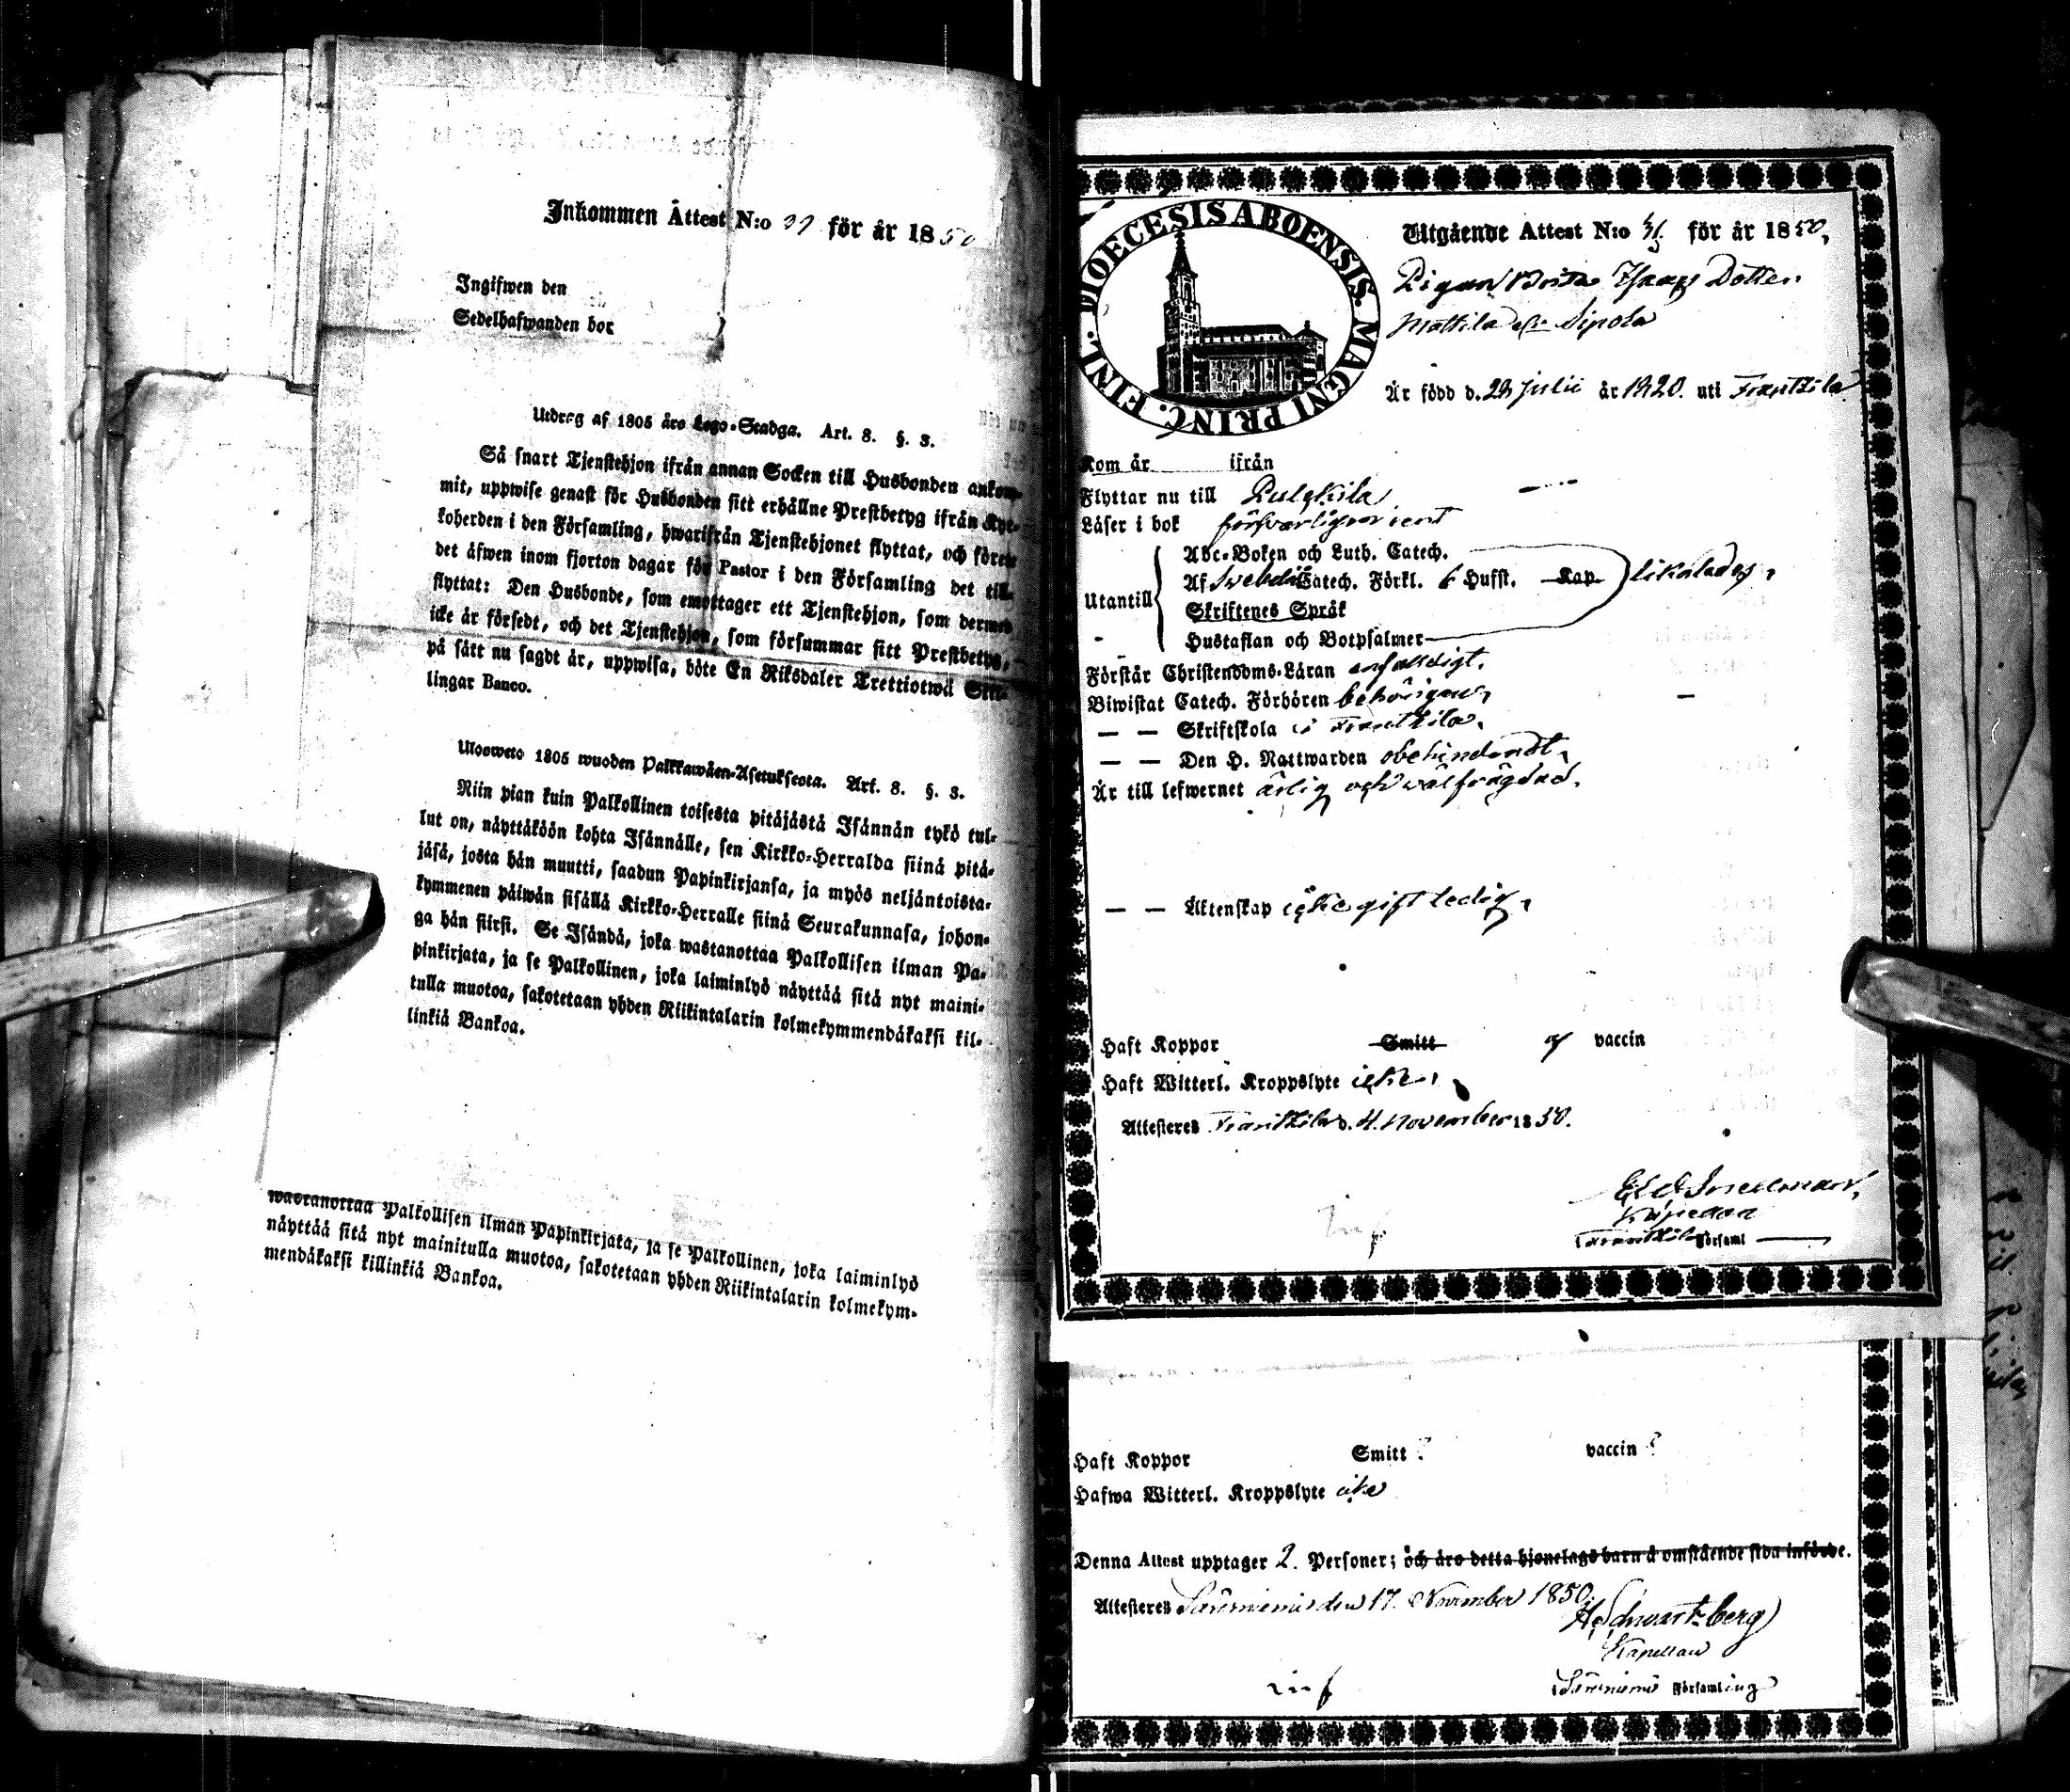 Inkommen Attest N:o för år 1850
Ingifwen den
Sedelhafwanden bor
Utdrag af 1805 års Lego-Stadga. Art. 8. §. 3.
Så snart Tjenstehjon ifrån annan Socken till Husbonden ankom-
mit, uppwise genast för Husbonden sitt erhållne Prestbetyg ifrån Kyr-
koherden i den Församling, hwarifrån Tjenstehjonet flyttat, och förete
det äfwen inom fjorton dagar för Pastor i den Församling det till-
flyttat: Den Husbonde, som emottager ett Tjenstehjon, som dermed
icke är försedt, och det Tjenstehjon, som försummar sitt Prestbetyg,
på sätt nu sagdt är, uppwisa, böte En Riksdaler Trettiotwå Skil-
lingar Banco.
Ulosweto 1805 wuoden Palkkawäen-Asetuksesta. Art. 8. §. 3.
Niin pian kuin Palkollinen toisesta pitäjästä Isännän tykö tul-
lut on, näyttäköön kohta Isännälle, sen Kirkko-Herralda siinä pitä-
jäsä, josta hän muutti, saadun Papinkirjansa, ja myös neljäntoista-
kymmenen päiwän sisällä Kirkko-Herralle siinä Seurakunnasa, johon-
ga hän siirsi. Se Isändä, joka wastanottaa Palkollisen ilman Pa-
pinkirjata, ja se Palkollinen, joka laiminlyö näyttää sitä nyt maini-
tulla muotoa, sakotetaan yhden Riikintalarin kolmekymmendäkaksi kil-
linkiä Bankoa.
wastanottaa Palkollisen ilman Papinkirjata, ja se Palkollinen, joka laiminlyö
näyttää sitä nyt mainitulla muotoa, sakotetaan yhden Riikintalarin kolmekym-
mendäkaksi killinkiä Bankoa.
DIOECESIS ABOENSIS. MAGNI PRINC. FINL.
Utgående Attest N:o för år 1850,
Pigan Brita Isaacs Dotter
Mattila Sipola
Är född d. julii år 1820. uti Frantsila
Kom år ifrån
Flyttar nu till Pulkkila
Läser i bok försvarligen rent
Utantill
Abc-Boken och Luth. Catech.
Af Svebelii Catech. Förkl. 6 Hufst. Kap likaledes,
Skriftenes Språk
Hustaflan och Botpsalmer
Förstår Christendoms-Läran enfaldigt.
Biwistat Catech. Förhören behörigen,
— — Skriftskola i Frantsila.
— — Den H. Nattwarden obehindradt,
Är till lefwernet ärlig och wälfrägdad.
— — Äktenskap icke gift ledig,
Haft Koppor Smitt af vaccin
Haft Witterl. Kroppslyte icke,
Attesteres Frantsila d. 4. November 1850.
Snellman,
Kapellan
Frantsila Församl
Haft Koppor Smitt ? vaccin ?
Hafwa Witterl. Kroppslyte icke
Denna Attest upptager 2. Personer; och äro detta hjonelags barn å omstående sida införde.
Attesteres Säresniemi den 17. November 1850.
H. Schwartzberg
Kapellan
Säresniemi Församling